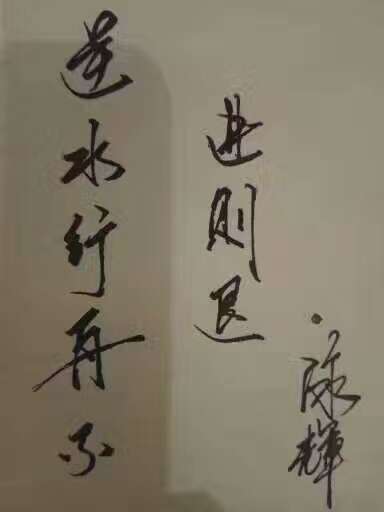 逆水行舟不
进则退
陈輝